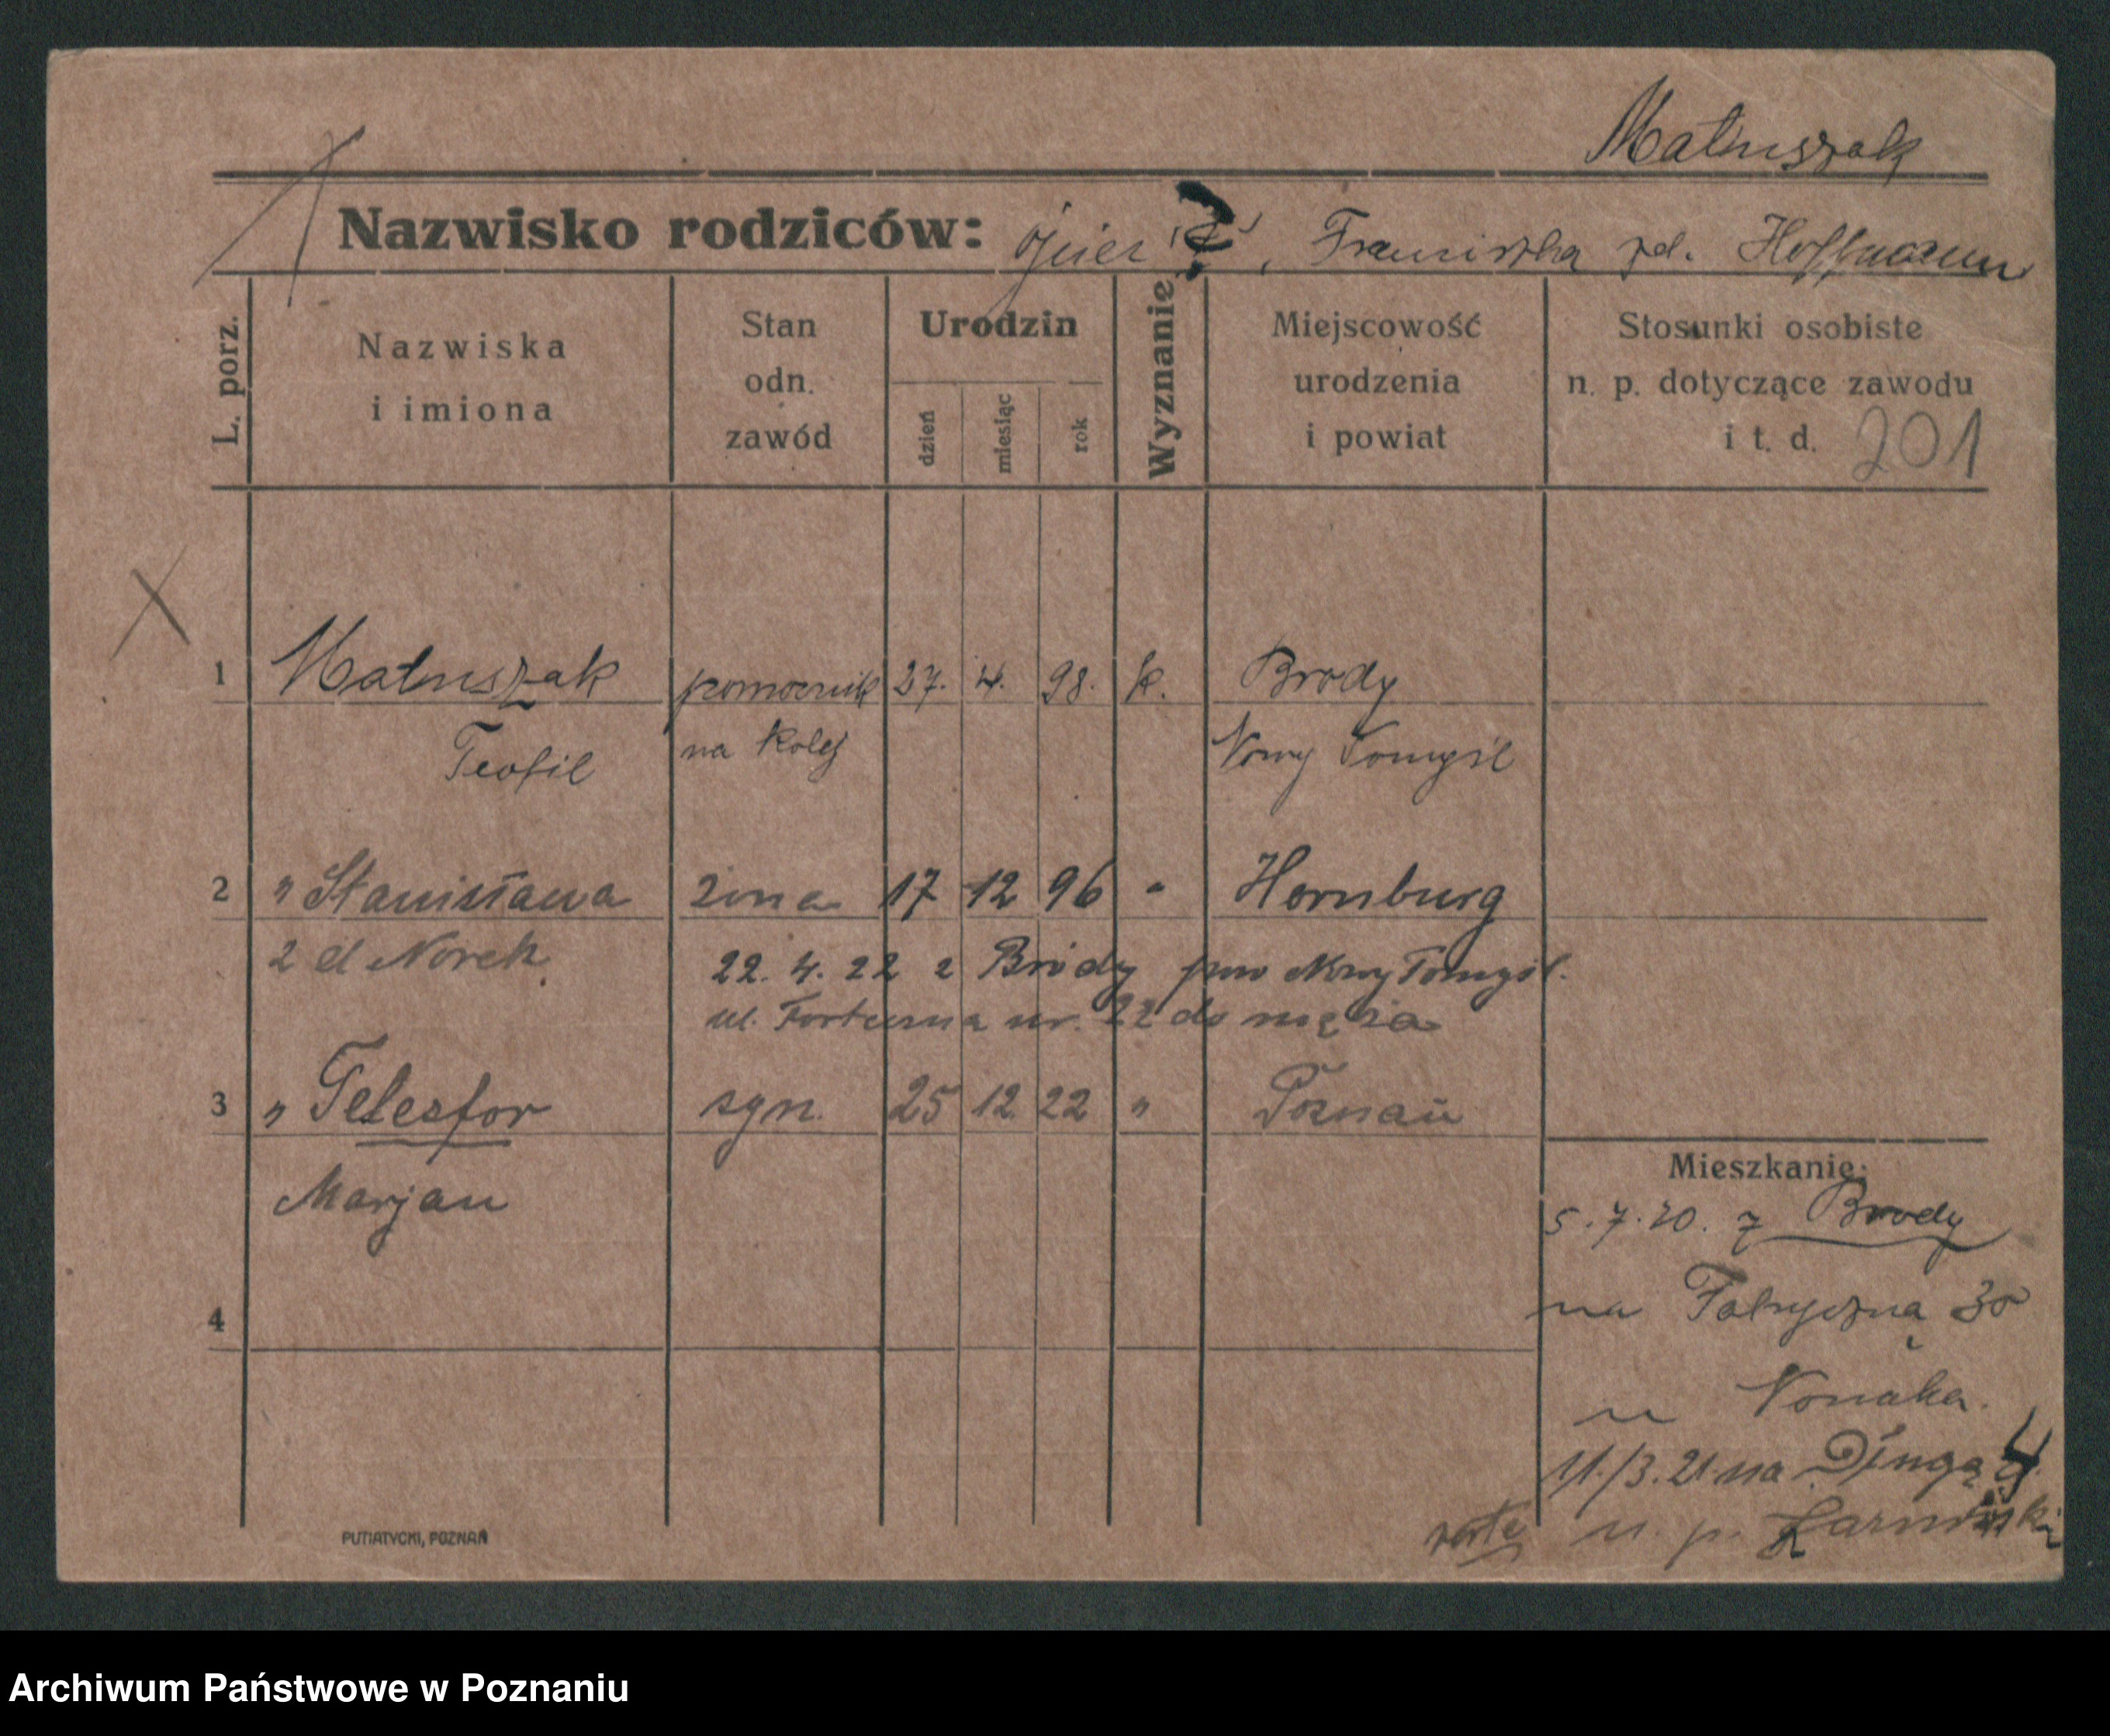 Matuszak
Nazwisko rodziców: ojciec, Franciszka zd. Hoffmann
L. porz.
Nazwiska
i imiona
Stan
odn.
zawód
Urodzin
dzień
miesiąc
rok
Wyznanie
Miejscowość
urodzenia
i powiat
Stosunki osobiste
n. p. dotyczące zawodu
i t. d. 201
1 Matuszak pomocnik 27. 4. 98. k. Brody
Teofil na Kolej Nowy Tomyśl
2 " Stanisława żona 17 12 96 " Hornburg
z d Norek 22. 4. 22 z Brody pow Nowy Tomyśl.
ul. nr. 22 do męża
3 " Telesfor syn. 25 12 22 " Poznań
Marjan
Mieszkanie:
5. 7. 20. z Brody
na Fabryczną 30
4
u Nowaka.
11./3. 21 na Długą 4
u. p.
verte
PUTIATYCKI, POZNAŃ
Archiwum Państwowe w Poznaniu